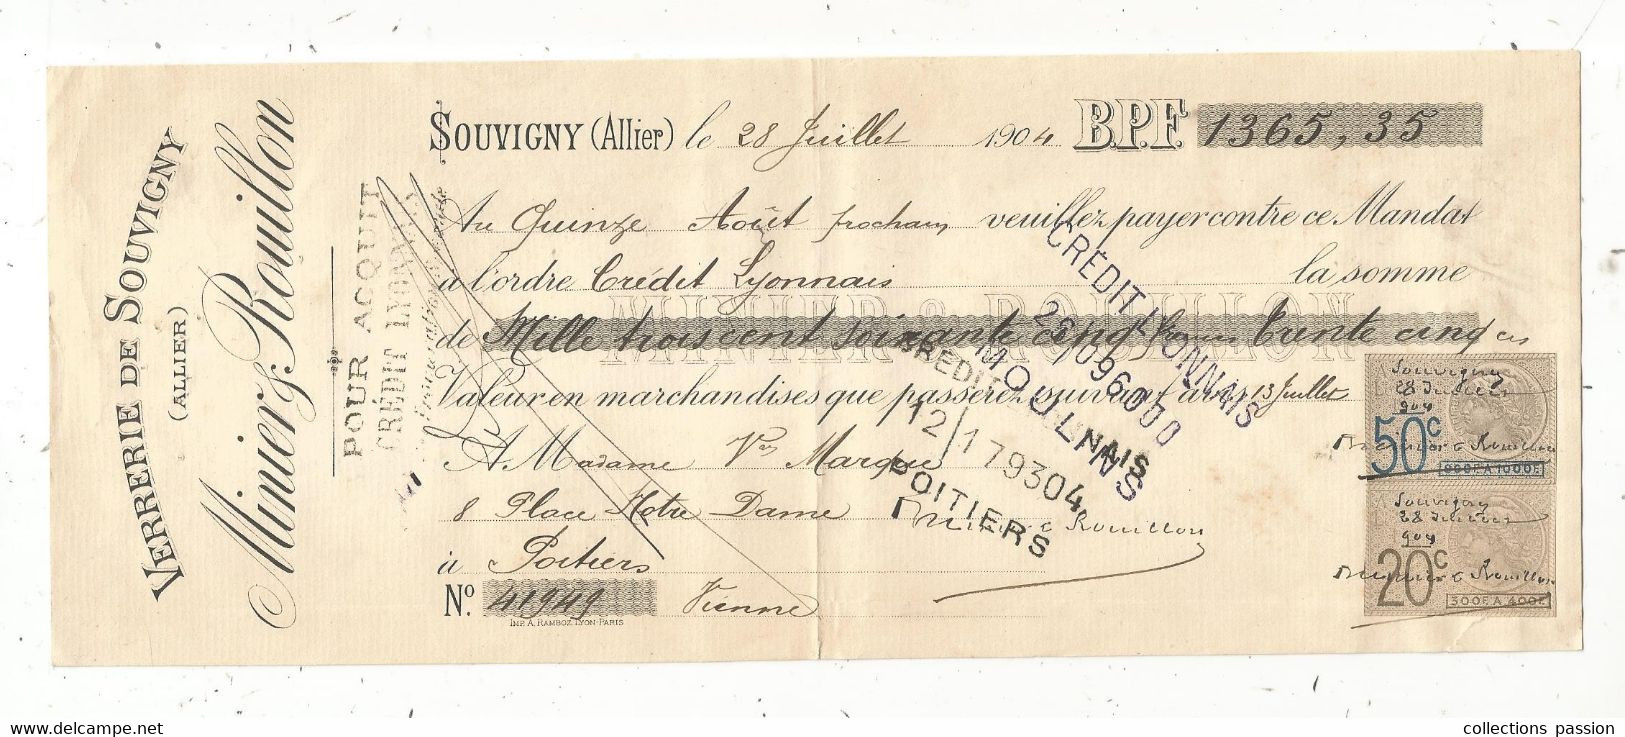 VERRERIE DE SOUVIGNY
(ALLIER)
Minier & Rouillon
POUR ACQUIT
CRÉDIT LYONNAIS
SOUVIGNY (Allier) le 28 Juillet 1904 B.P.F. 1365,35
Au Quinze Août prochain veuillez payer contre ce Mandat
a l'ordre Crédit Lyonnais la somme
MINIER & ROUILLON
de Mille trois cent soixante cinq francs trente cinq cs
Valeur en marchandises que passerez suivant avis 13 Juillet
A Madame Vve Marque
8 Place Notre Dame
à Poitiers
No. 41949 Vienne
IMP. A. RAMBOZ LYON-PARIS
CRÉDIT LYONNAIS
MOULINS
POITIERS
Minier & Rouillon
Souvigny
28 Juillet
904
50c
Minier & Rouillon
Souvigny
28 Juillet
904
20c
Minier & Rouillon
300F. A 400F.
collections passion